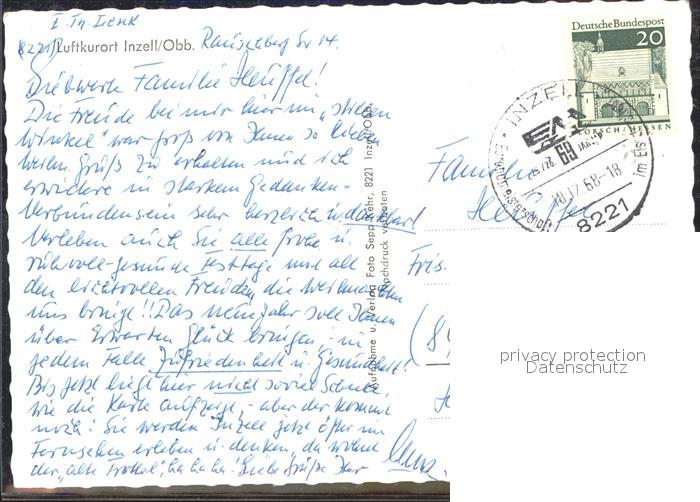 8221 Luftkurort Inzell/Obb.
Deutsche Bundespost
20
LORSCH/HESSEN
INZELL
25./26. JAN.
69
18.12.68-18
8221
im Eis
Familie
Fris.
Familie Heuffel!
Die Freude bei mir hier im "stillen
Winkel" war groß von Ihnen so lieben
Grüß zu erhalten und ich
erwidere in starkem Gedanken-
Verbundensein sehr herzlich u. dankbar!
Verleben auch Sie alle frohe u.
ruhvoll-gesunde Festtage und all
den lichtvollen Freuden die Weihnachten
uns bringt!! Das neue Jahr soll Ihnen
über Erwarten Glück bringen, - in
jedem Falle Zufriedenheit u. Gesundheit!
Bis jetzt liegt hier nicht soviel Schnee,
wie die Karte aufzeigt, - aber der kommt
noch! Sie werden Inzell jetzt öfter im
Fernsehen erleben u. denken, da wohnt
der "alte Trottel", ha ha ha! Liebe Grüße Ihr
Aufnahme u. Verlag Foto Sepp Kehr, 8221 Inzell/Obb.
Nachdruck verboten
privacy protection
Datenschutz